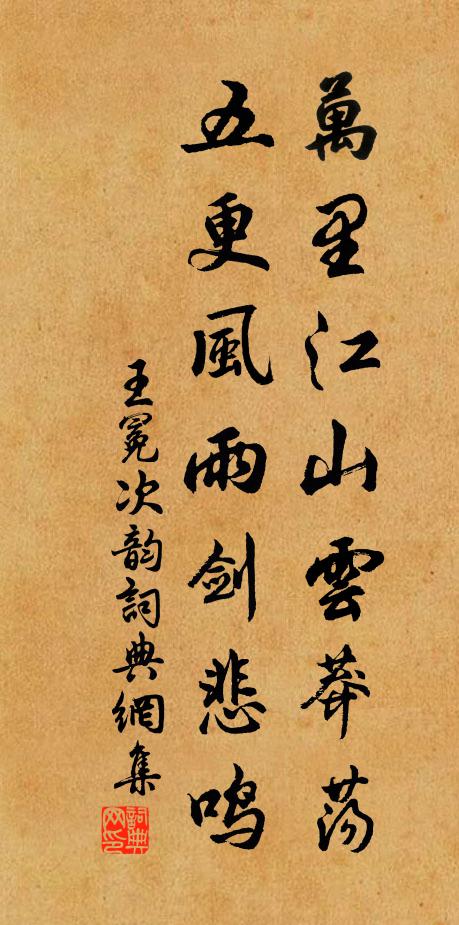 萬里江山雲莽荡
五更風雨剑悲鸣
王冕次韵詞典網集
詞典网印